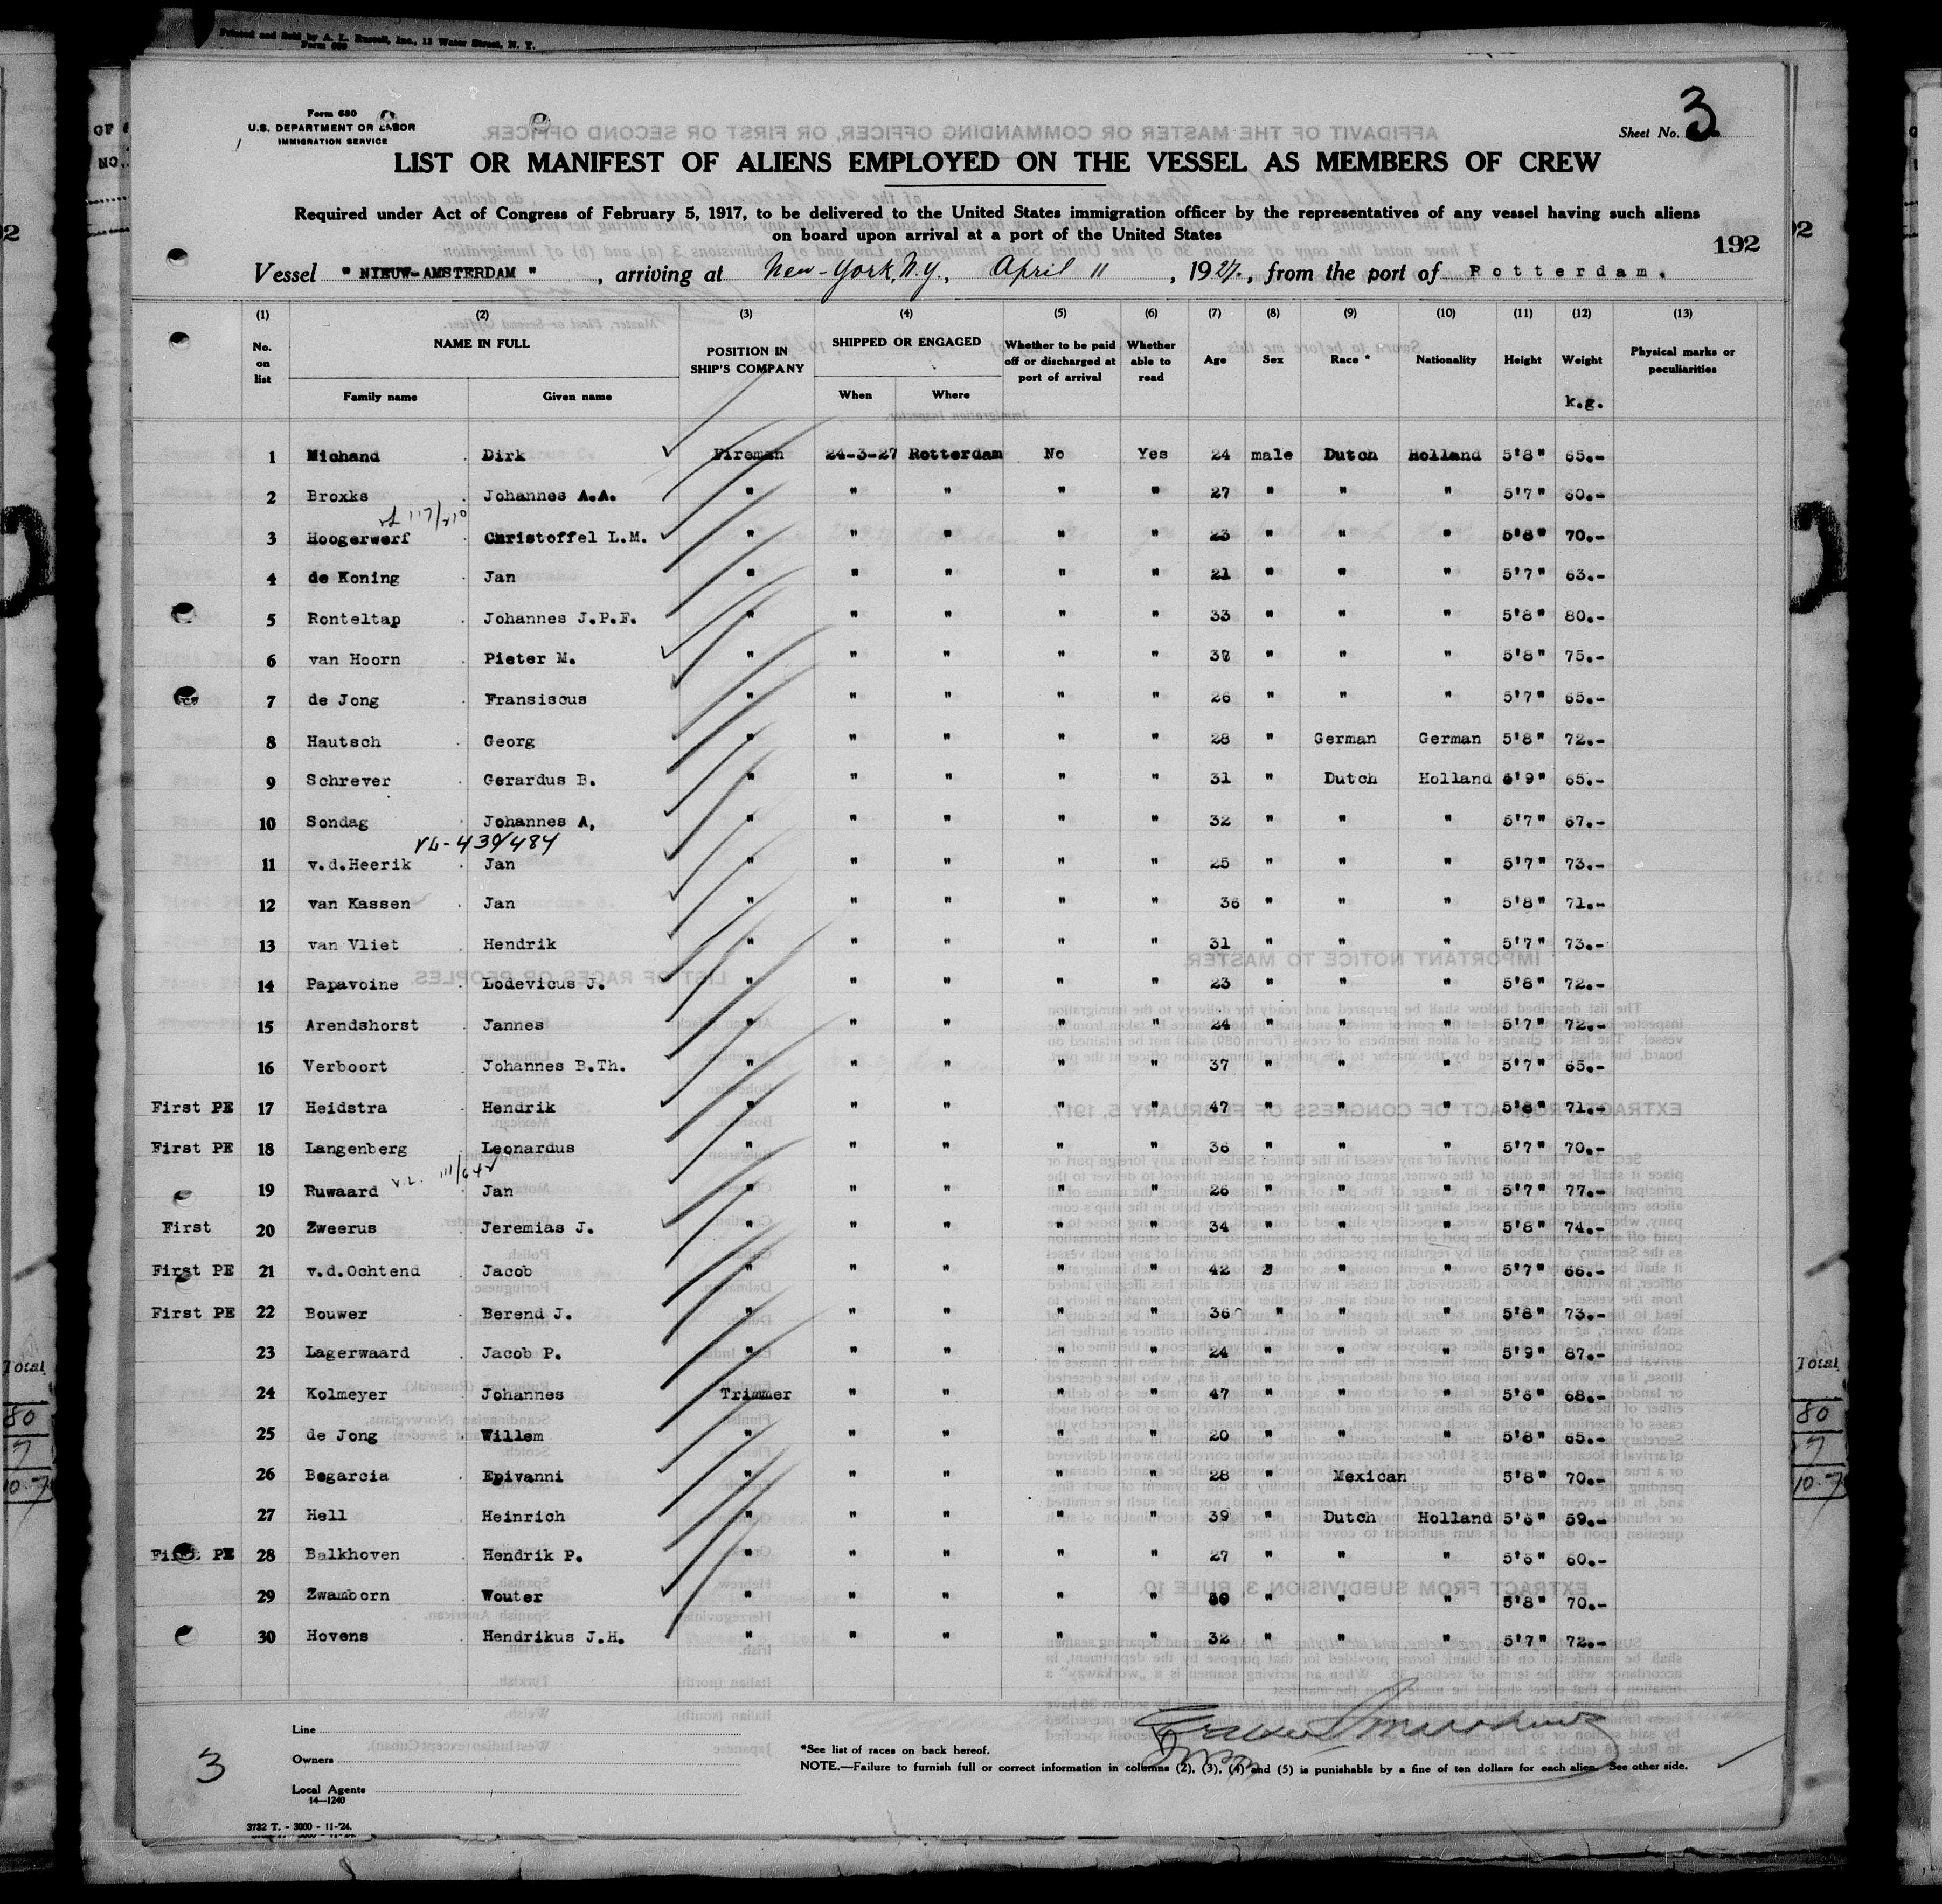 Printed and Sold by A. L. Russell, Inc., 12 Water Street, N. Y.
Form 680
Form 680
U.S. DEPARTMENT OR LABOR
IMMIGRATION SERVICE
Sheet No. 3
LIST OR MANIFEST OF ALIENS EMPLOYED ON THE VESSEL AS MEMBERS OF CREW
Required under Act of Congress of February 5, 1917, to be delivered to the United States immigration officer by the representatives of any vessel having such aliens
on board upon arrival at a port of the United States
192
Vessel " NIEUW-AMSTERDAM " , arriving at New-York, N.Y., April 11 , 1927, from the port of Rotterdam.
(1) (2) (3) (4) (5) (6) (7) (8) (9) (10) (11) (12) (13)
No. on list NAME IN FULL Family name Given name POSITION IN SHIP'S COMPANY SHIPPED OR ENGAGED When Where Whether to be paid off or discharged at port of arrival Whether able to read Age Sex Race * Nationality Height Weight k.g. Physical marks or peculiarities
1 Michand Dirk Fireman 24-3-27 Rotterdam No Yes 24 male Dutch Holland 5'8" 65.-
2 Broxks Johannes A.A. " " " " " 27 " " " 5'7" 60.-
3 Hoogerwerf Christoffel L.M. " " " " " 23 " " " 5'8" 70.-
4 de Koning Jan " " " " " 21 " " " 5'7" 63.-
5 Ronteltap Johannes J.P.F. " " " " " 33 " " " 5'8" 80.-
6 van Hoorn Pieter M. " " " " " " " " 5'8" 75.-
7 de Jong Fransiscus " " " " " 26 " " " 5'7" 65.-
8 Hautsch Georg " " " " " 28 " German German 5'8" 72.-
9 Schrever Gerardus B. " " " " " 31 " Dutch Holland 5'9" 65.-
10 Sondag Johannes A, " " " " " 32 " " " 5'7" 67.-
11 v.d.Heerik Jan " " " " " 25 " " " 5'7" 73.-
12 van Kassen Jan " " " " " 36 " " " 5'8" 71.-
13 van Vliet Hendrik " " " " " 31 " " " 5'7" 73.-
14 Papavoine Lodevicus J. " " " " " 23 " " " 5'8" 72.-
15 Arendshorst Jannes " " " " " 24 " " " 5'7" 72.-
16 Verboort Johannes B.Th. " " " " " 37 " " " 5'7" 65.-
First PE 17 Heidstra Hendrik " " " " " 47 " " " 5'8" 71.-
First PE 18 Langenberg Leonardus " " " " " 36 " " " 5'7" 70.-
19 Ruwaard Jan " " " " " 26 " " " 5'7" 77.-
First 20 Zweerus Jeremias J. " " " " " 34 " " " 5'8" 74.-
First PE 21 v.d.Ochtend Jacob " " " " " 42 " " " 5'7" 66.-
First PE 22 Bouwer Berend J. " " " " " 36 " " " 5'8" 73.-
23 Lagerwaard Jacob P. " " " " " 24 " " " 5'9" 87.-
24 Kolmeyer Johannes Trimmer " " " " 47 " " " 5'6" 68.-
25 de Jong Willem " " " " " 20 " " " 5'8" 65.-
26 Begarcia Epivanni " " " " " 28 " Mexican 5'8" 70.-
27 Hell Heinrich " " " " " 39 " Dutch Holland 5'6" 59.-
First PE 28 Balkhoven Hendrik P. " " " " " 27 " " " 5'6" 60.-
29 Zwamborn Wouter " " " " " " " " 5'8" 70.-
30 Hovens Hendrikus J.H. " " " " " 32 " " " 5'7" 72.-
Line
Owners
Local Agents
14—1240
3732 T. - 3000 - 11-'24.
3
*See list of races on back hereof.
NOTE.—Failure to furnish full or correct information in columns (2), (3), (4) and (5) is punishable by a fine of ten dollars for each alien. See other side.
Total
80
7
10.7